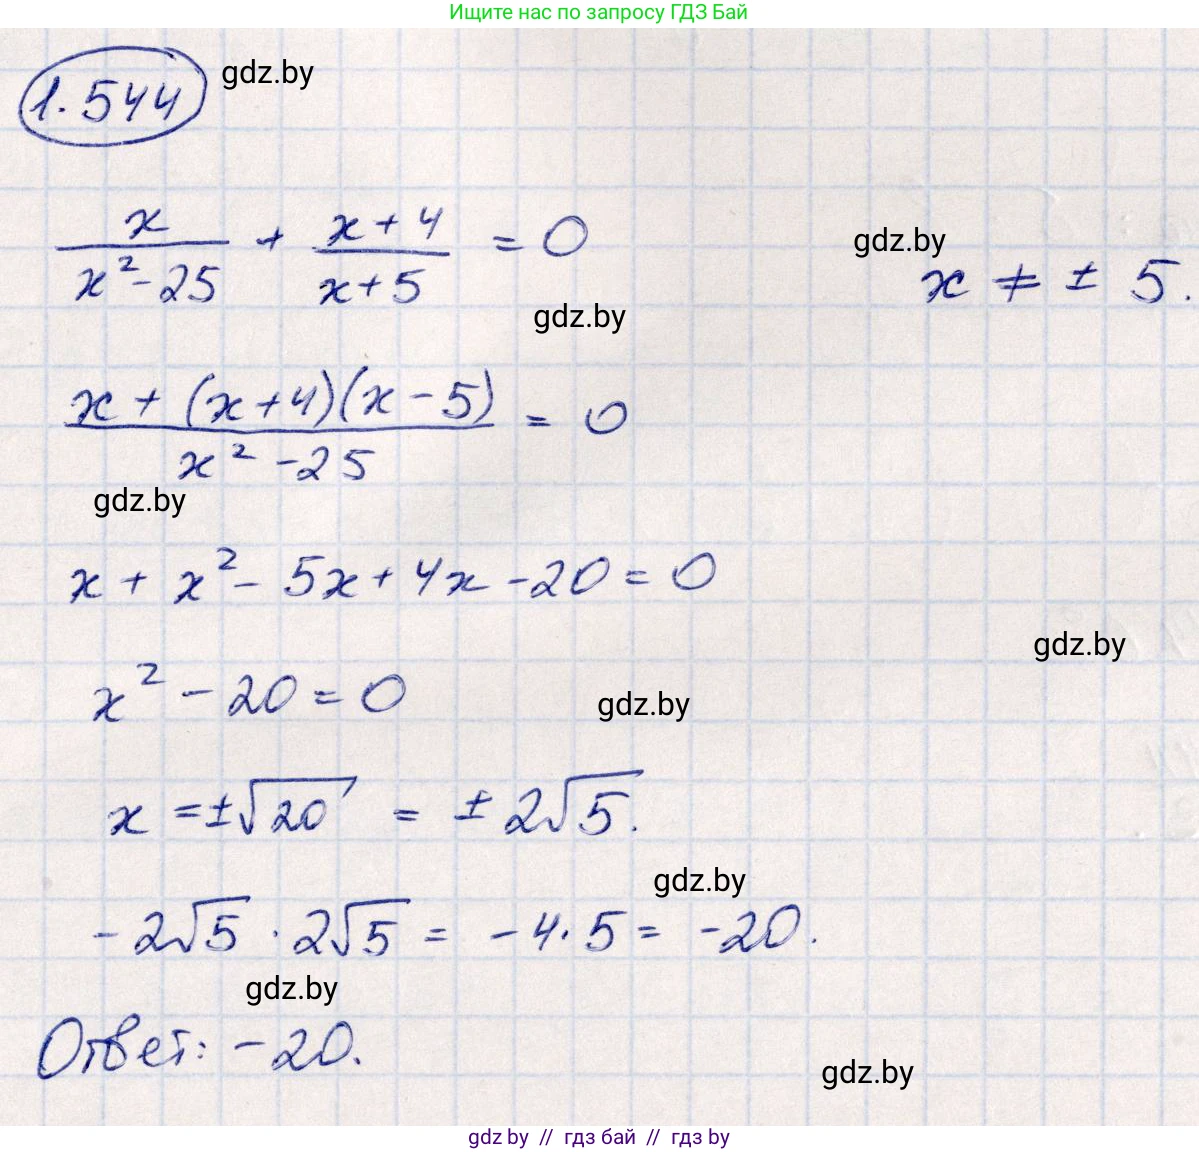 Ищите нас по запросу ГДЗ Бай
1.544 gdz.by
x/(x²-25) + (x+4)/(x+5) = 0 gdz.by
x ≠ ± 5.
gdz.by
(x + (x+4)(x-5))/(x² - 25) = 0
gdz.by
x + x² - 5x + 4x - 20 = 0
gdz.by
x² - 20 = 0 gdz.by
x = ±√20 = ± 2√5.
gdz.by
- 2√5 · 2√5 = - 4·5 = -20.
gdz.by
Ответ: -20.
gdz.by
gdz by // гдз бай // гдз by